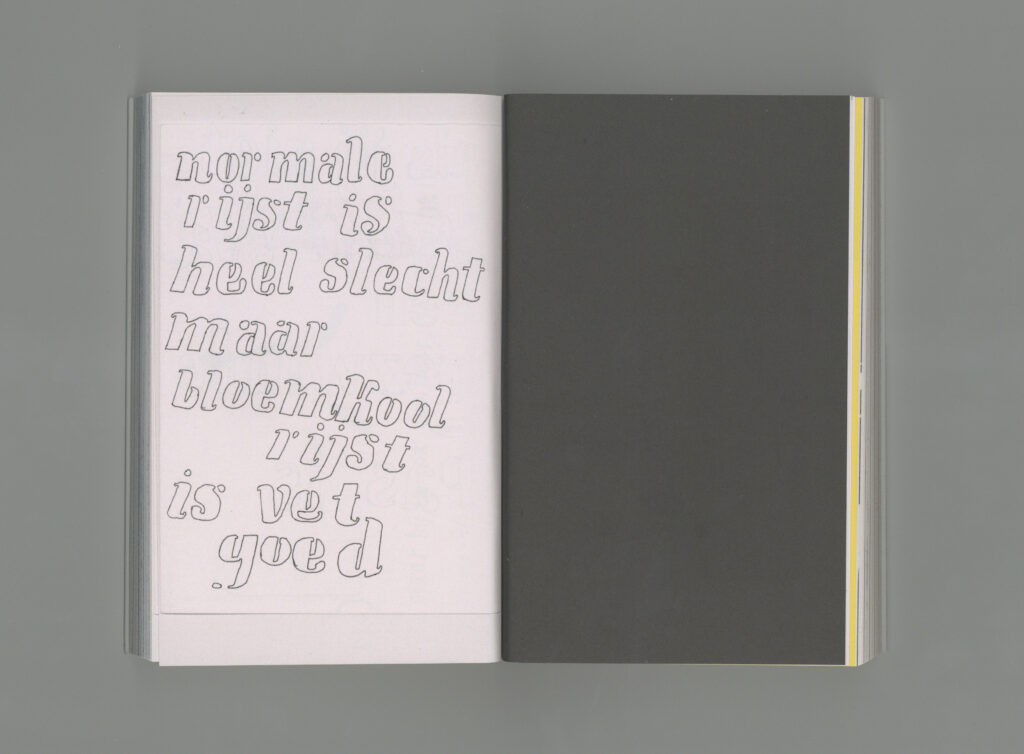 normale
rijst is
heel slecht
maar
bloemkool
rijst
is vet
goed